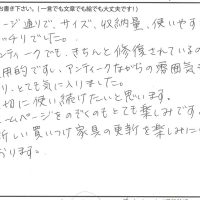 お書き下さい。(一言でも文章でも絵でも大丈夫です!)
ージ通りで、サイズ、収納量、使いやす
ッチリでした。
ンティークでも、きちんと修復されているの
用的ですし、アンティークながらの雰囲気
り、とても気に入りました。
切に使い続けたいと思います。
ームページをのぞくのもとても楽しみです。
新しい買いつけ家具の更新を楽しみに
おります。